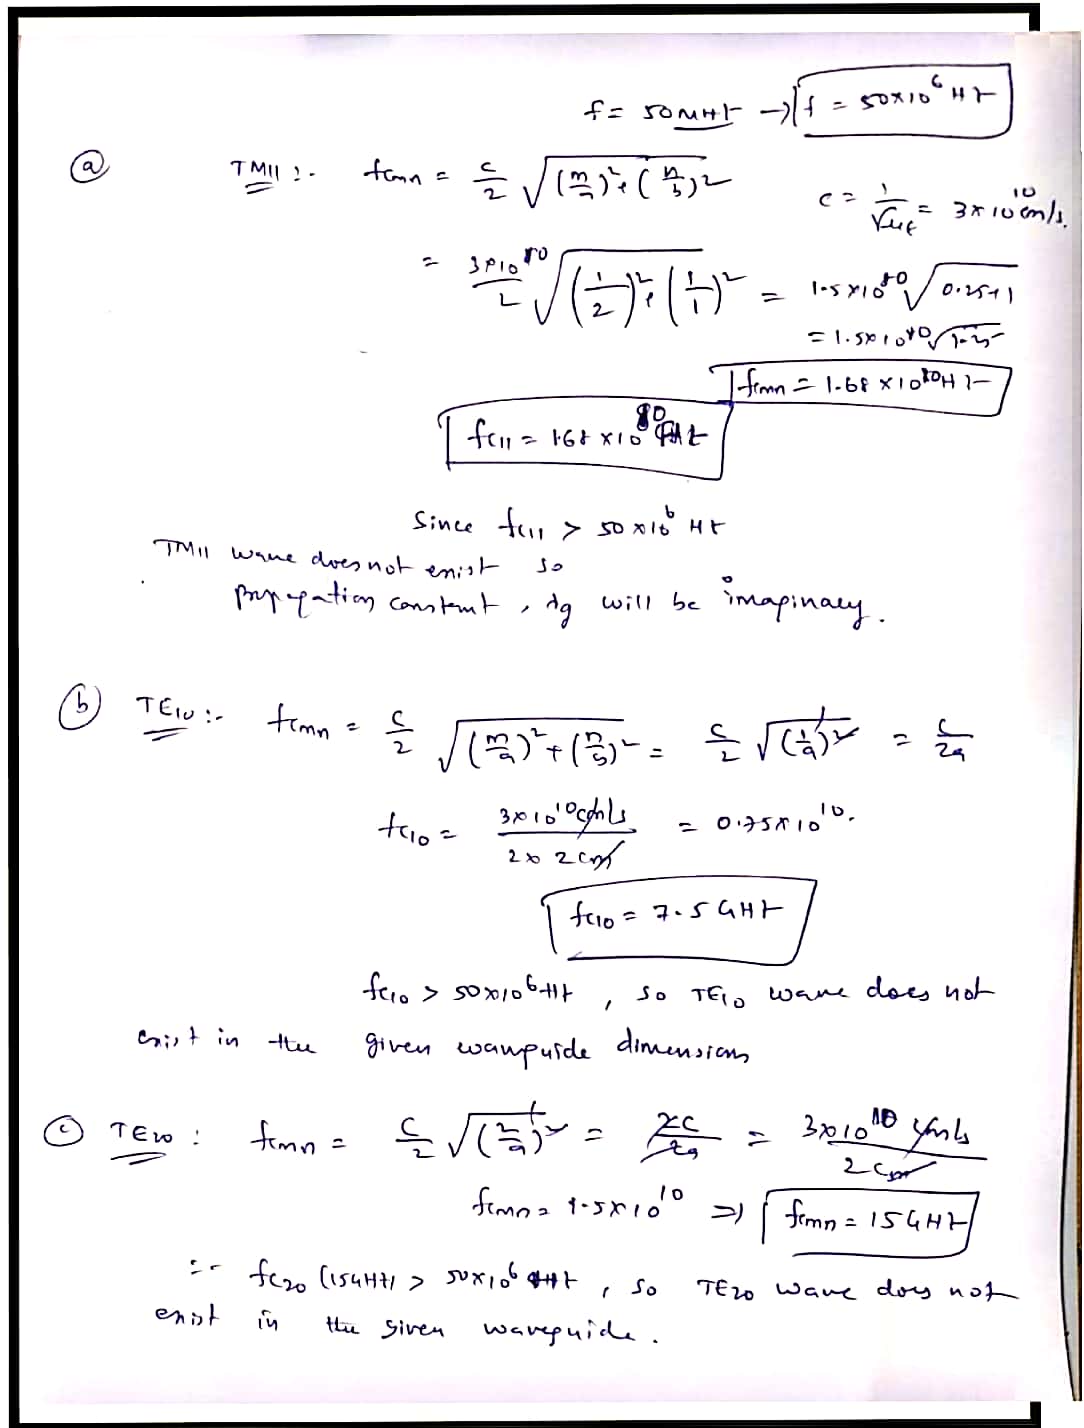 f = 50MHz → f = 50×10⁶ Hz
ⓐ TM11 :- fcmn = c/2 √(m/a)²+(n/b)²
c = 1/√με = 3×10¹⁰ cm/s.
= 3×10¹⁰/2 √(1/2)²+(1/1)² = 1.5×10¹⁰ √0.25+1
= 1.5×10¹⁰ √1.25
fcmn = 1.68×10¹⁰ Hz
fc11 = 1.68×10¹⁰ Hz
Since fc11 > 50×10⁶ Hz
TM11 wave does not exist so
propagation constant, λg will be imaginary.
ⓑ TE10 :- fcmn = c/2 √(m/a)²+(n/b)² = c/2 √(1/a)² = c/2a
fc10 = 3×10¹⁰cm/s / 2×2cm = 0.75×10¹⁰.
fc10 = 7.5 GHz
fc10 > 50×10⁶ Hz, so TE10 wave does not
exist in the given waveguide dimensions
ⓒ TE20 : fcmn = c/2 √(2/a)² = 2c/2a = 3×10¹⁰ cm/s / 2cm
fcmn = 1.5×10¹⁰ ⇒ fcmn = 15GHz
:- fc20 (15GHz) > 50×10⁶ Hz, so TE20 wave does not
exist in the given waveguide.